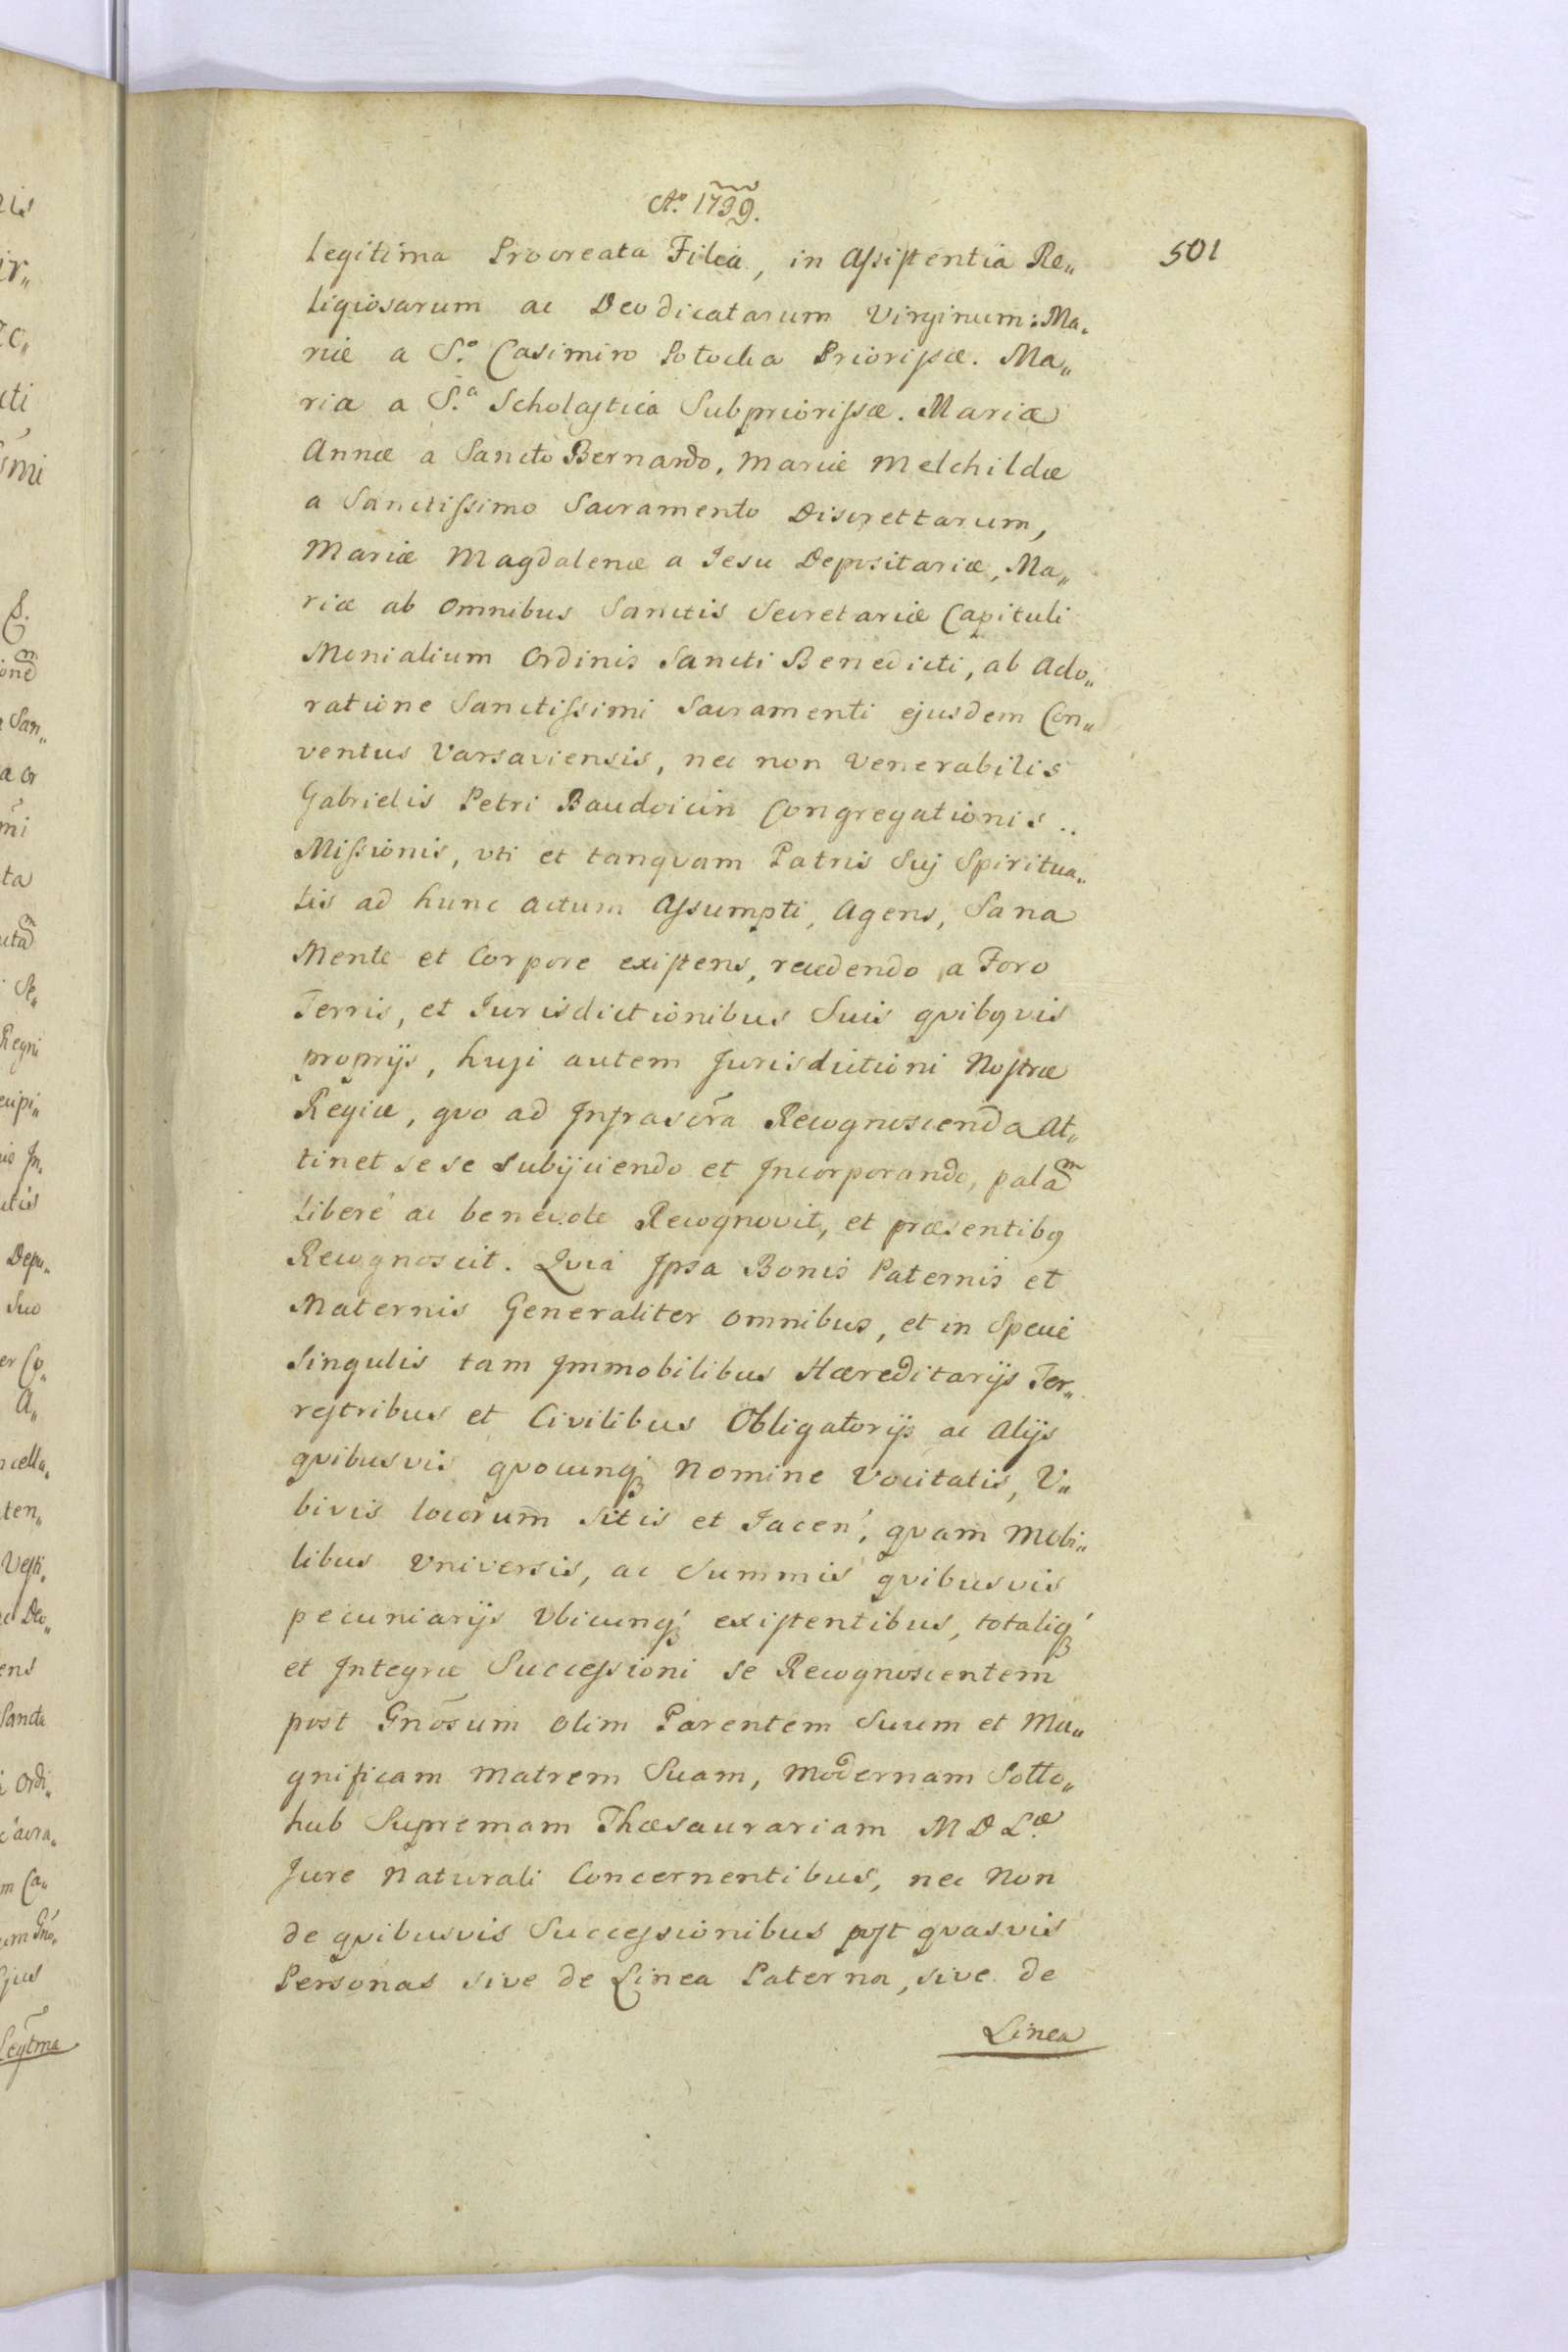 Aº 1739.
501
legitima Procreata Filia, in Assistentia Re„
ligiosarum ac Deo dicatarum Virginum: Ma„
riæ a S.º Casimiro Potocka Priorissæ. Ma„
ria a S.ª Scholastica Subpriorissæ. Mariæ
Annæ a Sancto Bernardo, Mariæ Melchildæ
a Sanctissimo Sacramento Discrettarum,
Mariæ Magdalenæ a Jesu Depositariæ, Ma„
riæ ab omnibus Sanctis Secretariæ Capituli
Monialium Ordinis Sancti Benedicti, ab Ado„
ratione Sanctissimi Sacramenti ejusdem Con„
ventus Varsaviensis, nec non Venerabilis
Gabrielis Petri Baudoiin Congregationis
Missionis, vti et tanqvam Patris Suj Spiritua„
lis ad hunc actum Assumpti, Agens, Sana
Mente et Corpore existens, recedendo a Foro
Terris, et Jurisdictionibus Suis qvibqvis
proprijs, huji autem Jurisdictioni Nostræ
Regiæ, qvo ad Infrascr̃a Recognoscenda At„
tinet se se subijciendo et Incorporando, palam
libere ac benevole Recognovit, et præsentibq
Recognoscit. Qvia Ipsa Bonis Paternis et
Maternis Generaliter omnibus, et in Specie
Singulis tam Immobilibus Hæreditarijs Ter„
restribus et Civilibus Obligatorijs ac Alijs
qvibusvis qvocunq; Nomine Vocitatis, V„
bivis locorum sitis et Jacen', qvam Mobi„
libus Vniversis, ac Summis qvibusvis
pecuniarijs Vbicunq; existentibus, totaliq;
et Integræ Successioni se Recognoscentem
post Gnõsum olim Parentem Suum et Ma„
gnificam Matrem Suam, Modernam Sollo„
hub Supremam Thæsaurariam M D L.æ
Jure Naturali Concernentibus, nec Non
de qvibusvis Successionibus post qvasvis
Personas sive de Linea Paterna, sive de
Linea